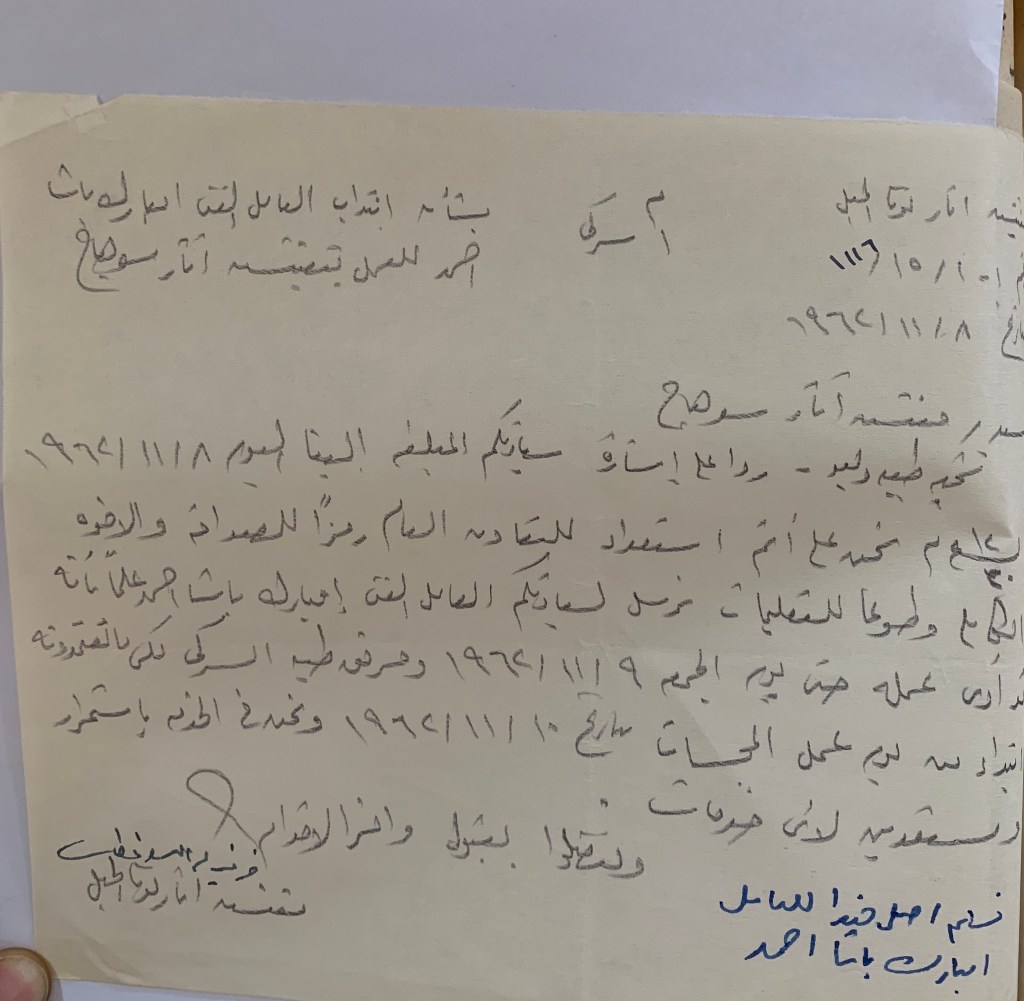 تفتيش آثار تونا الجبل
رقم ١٠١ / ١٥ / ١١١٦
تاريخ ٨ / ١١ / ١٩٦٢
١ سركى
بشأن انتداب العامل الفنى امبارك باشا
احمد للعمل بتفتيش آثار سوهاج
السيد / مفتش آثار سوهاج
تحية طيبة وبعد - ردا على إشارة سيادتكم المبلغه الينا اليوم ٨ / ١١ / ١٩٦٢
نحن على أتم استعداد للتعاون العام رمزًا للصداقة والاخوه
وطوعا للتعليمات نرسل لسيادتكم العامل الفنى إمبارك باشا احمد علمًا بأنه
قد أدى عمله حتى يوم الجمعه ٩ / ١١ / ١٩٦٢ ومرفق طيه السركى لكى تعتمدونه
ابتداء من يوم عمل المجسات بتاريخ ١٠ / ١١ / ١٩٦٢ ونحن فى الخدمه بإستمرار
ومستعدين لأى خدمات .
وتفضلوا بقبول وافر الاحترام
تفتيش آثار تونا الجبل
تسلم اصل هذا للعامل
امبارك باشا احمد